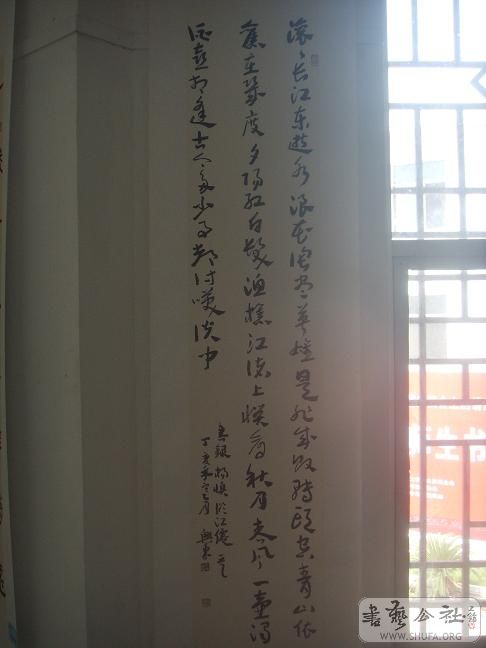 滚滚长江东逝水浪花淘尽英雄是非成败转头空青山依
舊在幾度夕阳红白髮渔樵江渚上惯看秋月春风一壶浊
酒喜相逢古今多少事都付笑谈中
杨慎临江仙
丁亥年
書藝公社
WWW.SHUFA.ORG